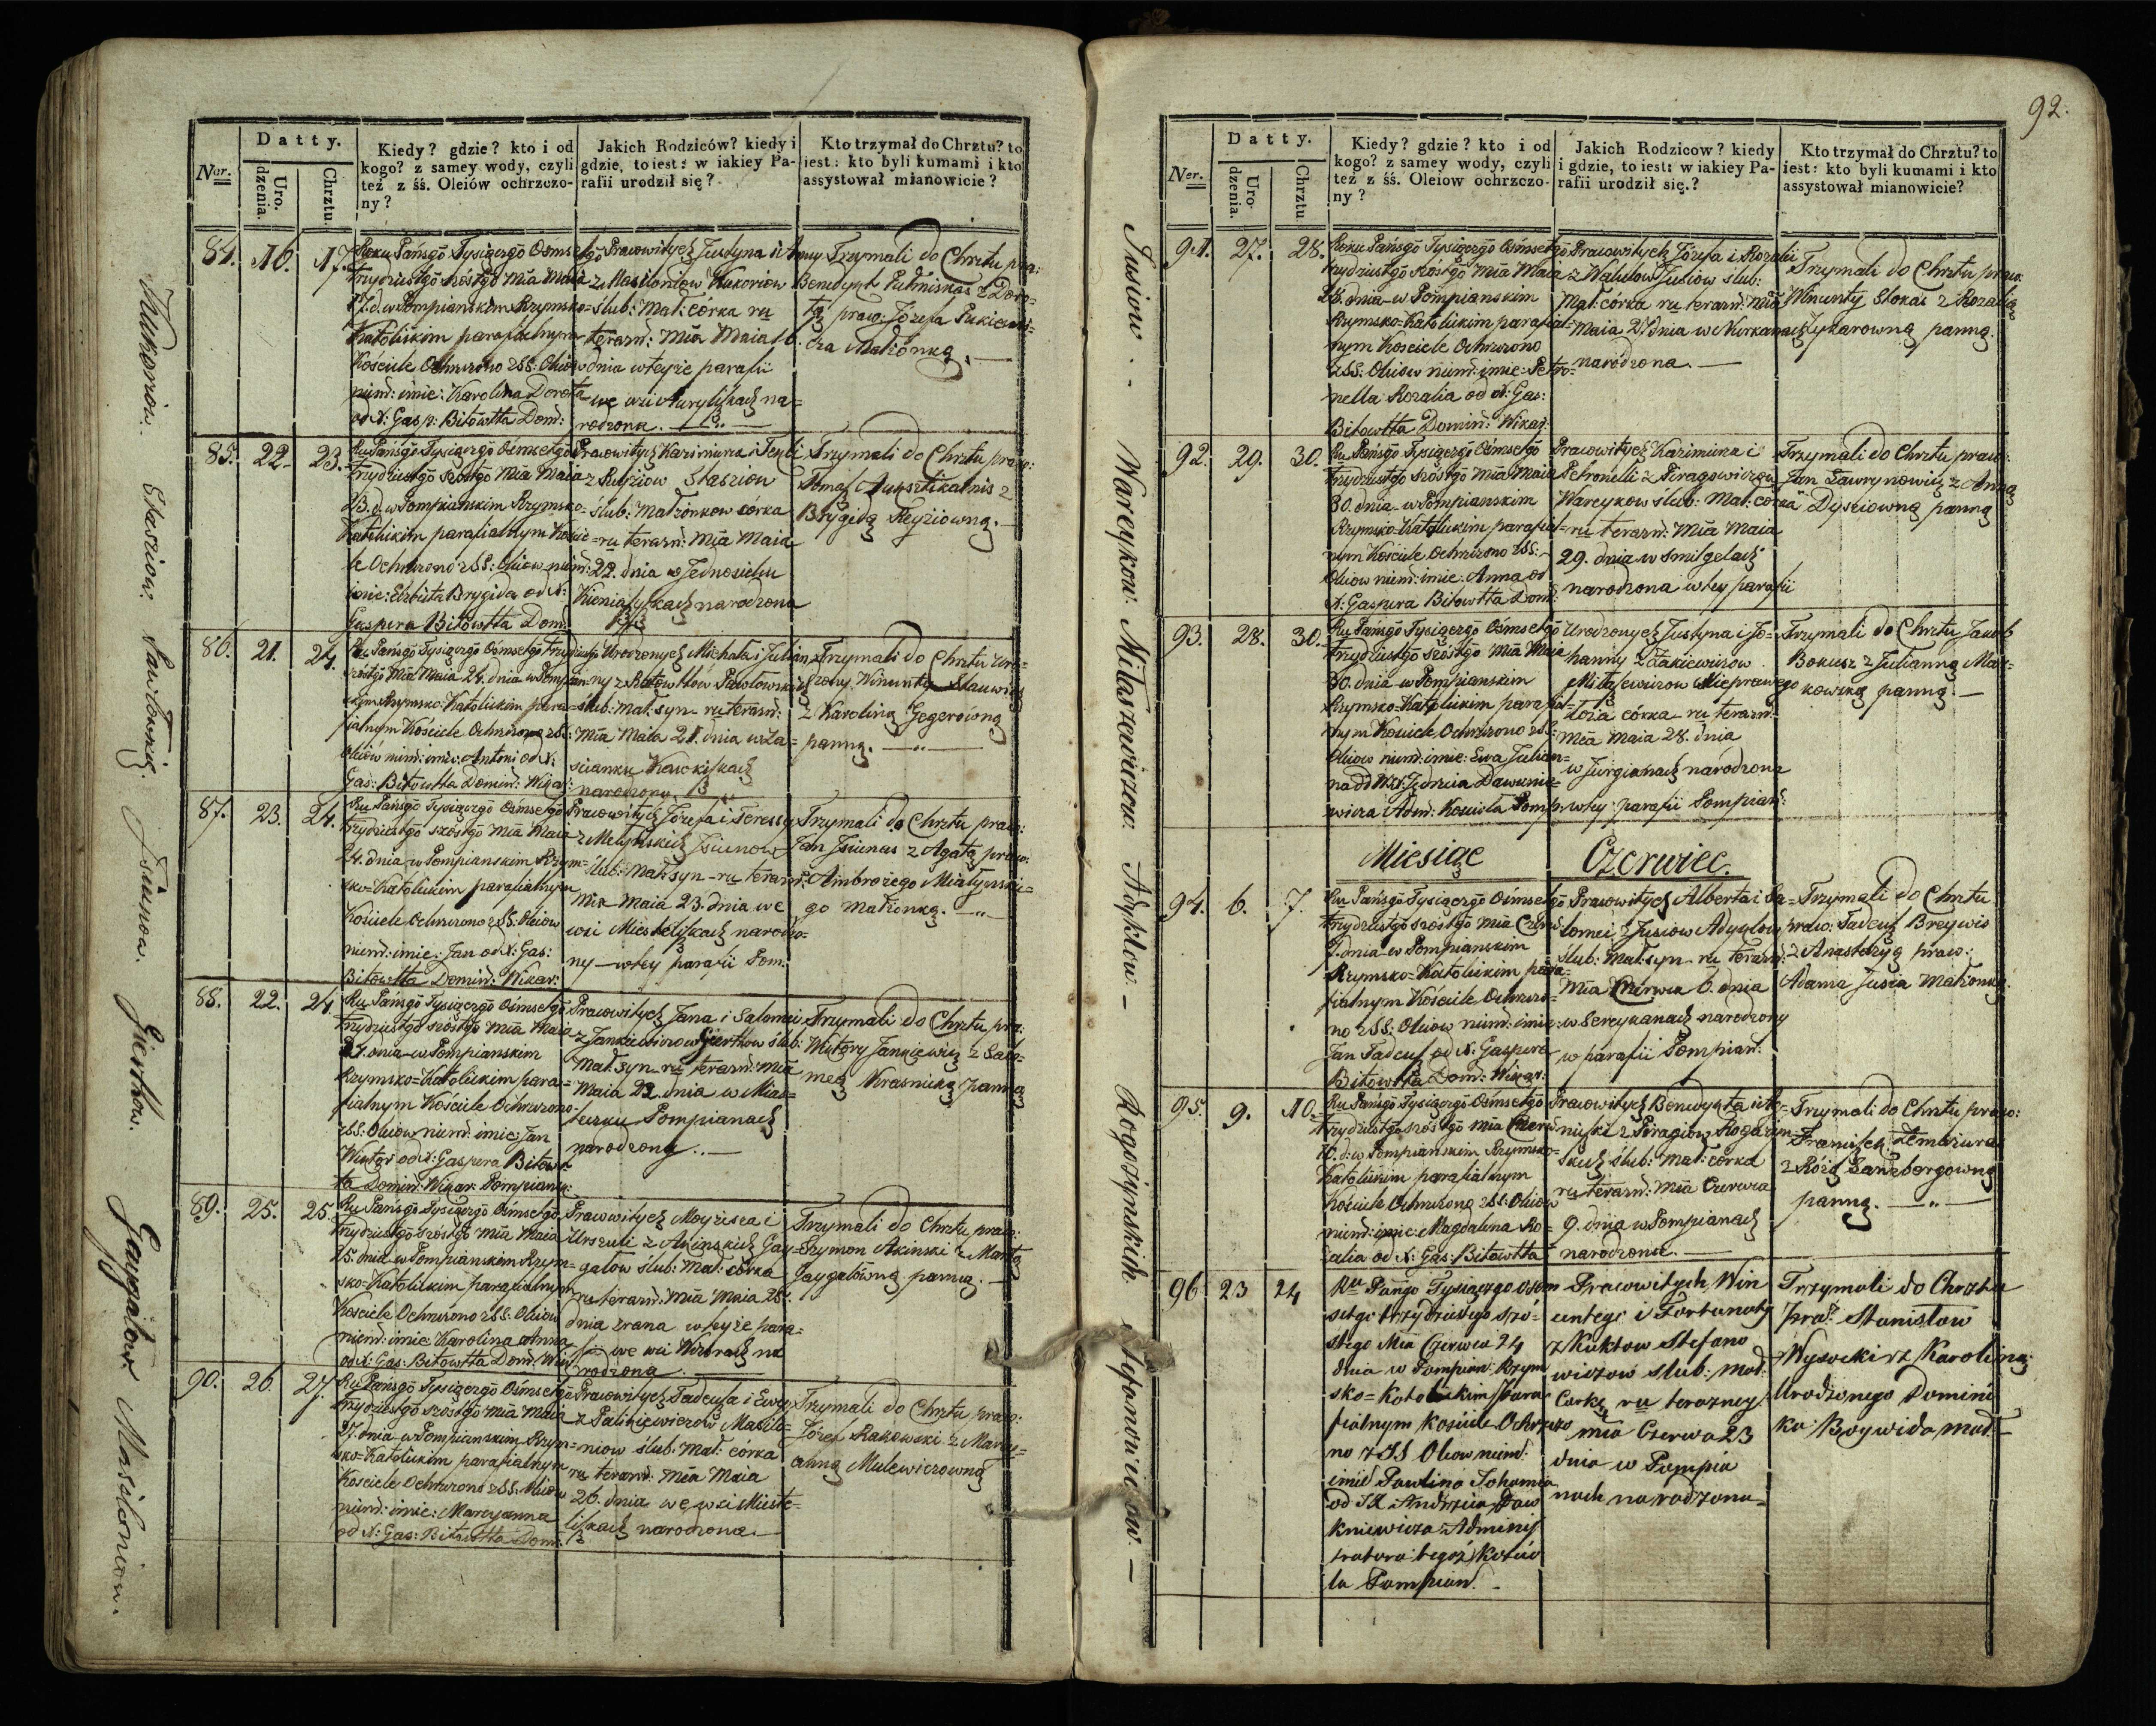 Nor.
Datty.
Uro-
dzenia.
Chrztu.
Kiedy? gdzie? kto i od
kogo? z samey wody, czyli
też z śś. Oleiów ochrzczo-
ny?
Jakich Rodziców? kiedy i
gdzie, to iest: w iakiey Pa-
rafii urodził się?
Kto trzymał do Chrztu? to
iest: kto byli kumami i kto
assystował mianowicie?
84. 16. 17.
Roku Pańsgō Tysiącgō Ośmsetgō
trzydziestgō szóstgō Mca Maia
17. d. w Pompianskim Rzymsko-
Katolickim parafialnym
Kościele Ochrzczono z SS: Oleiów
niem: imie: Karolina Dorota
od X: Gasp: Bitowtta Dom:
Prawowitych Justyna i Anny
z Masiloniow Kukoriow
ślub: Mał: córka ru
terazn: Mca Maia 16.
dnia w teyże parafii
we wsi Auryliszkach na=
rodzona.
Trzymali do Chrztu pra:
Benedykt Putniskas z Doro=
tą praw: Józefa Pukiewi=
cza Małżonką.
85. 22. 23.
Ru Pańsgō Tysiącgō Ośmsetgō
trzydziestgō szóstgō Mca Maia
23. d. w Pompianskim Rzymsko=
Katolickim parafialnym Koście=
le Ochrzczono z SS: Oleiow niem:
imie: Elżbieta Brygida od X:
Gaspera Bitowtta Dom:
Prawowitych Kazimierza i Tekli
z Rutziow Staszion
ślub: Małżonkow córka
ru terazn: Mca Maia
22. dnia w Jednosielu
Kieniaiszkach narodzona
Trzymali do Chrztu praw:
Tomasz Auksztikalnis z
Brygidą Reyżiowną.
86. 21. 24.
Ru Pańsgō Tysiącgō Ośmsetgō trzydziestgō
szóstgō Mca Maia 24. dnia w Pompian-
skim Rzymsko-Katolickim para=
fialnym Kościele Ochrzczono z SS:
Oleiów niem: imie: Antoni od X:
Gas: Bitowtta Domin: Wikar:
Urodzonych Michała i Julian=
ny z Butowttów Pawłowskich
ślub: Mał: syn ru terazn:
Mca Maia 21. dnia w Za=
ścianku Kawkiszkach
narodzony.
Trzymali do Chrztu Uro=
dzony Wincenty Stauwicz
z Karoliną Gegerówną
panną.
87. 23. 24.
Ru Pańsgō Tysiącgō Ośmsetgō
trzydziestgō szóstgō Mca Maia
24. dnia w Pompianskim Rzym=
sko=Katolickim parafialnym
Kościele Ochrzczono z SS: Oleiow
niem: imie: Jan od X: Gas:
Bitowtta Domin: Wikar:
Prawowitych Józefa i Teressy
z Melynskich Jsiunow
ślub: Mał: syn ru terazn:
Mca Maia 23. dnia we
wsi Miesteliszkach narodzo=
ny w tey parafii Pom:
Trzymali do Chrztu praw:
Jan Jsiunas z Agatą praw:
Ambrożego Miałynski=
go małżonką.
88. 22. 24.
Ru Pańsgō Tysiącgō Ośmsetgō
trzydziestgō szóstgō Mca Maia
24. dnia w Pompianskim
Rzymsko=Katolickim para=
fialnym Kościele Ochrzczono
z SS: Oleiow niem: imie: Jan
Wiktor od X: Gaspera Bitow=
tta Domin: Wikar: Pompiansk:
Prawowitych Jana i Salomei
z Jankiewiczow Gierthow ślub:
Mał: syn ru terazn: Mca
Maia 22. dnia w Mias=
teczku Pompianach
narodzony.
Trzymali do Chrztu pra:
Wiktory Jankiewicz z Salo=
meą Krasnicką panną
89. 25. 25.
Ru Pańsgō Tysiącgō Ośmsetgō
trzydziestgō szóstgō Mca Maia
25. dnia w Pompianskim Rzym=
sko-Katolickim parafialnym
Kościele Ochrzczono z SS: Oleiow
niem: imie: Karolina Anna
od X: Gas: Bitowtta Dom: Wik:
Prawowitych Moyżisza i
Urszuli z Akinskich Gay=
gałow ślub: Mał: córka
ru terazn: Mca Maia 25.
dnia zrana w teyże para=
fii we wsi na
rodzona
Trzymali do Chrztu praw:
Szymon Akinski z Martą
Gaygałowną panną.
90. 26. 27.
Ru Pańsgō Tysiącgō Ośmsetgō
trzydziestgō szóstgō Mca Maia
27. dnia w Pompianskim Rzym=
sko=Katolickim parafialnym
Kościele Ochrzczono z SS: Oleiow
niem: imie: Marcyanna
od X: Gas: Bitowtta Dom:
Prawowitych Tadeusza i Ewy
z Palikiewiczow Masilo=
niow ślub: Mał: córka
ru terazn: Mca Maia
26. dnia we wsi Mieste=
liszkach narodzona.
Trzymali do Chrztu praw:
Józef Rakowski z Marcy=
anną Mulewiczowną
Kukoriow. Staszion. Pawłowskich. Jsiunow. Gierthow. Gaygałow. Masilonion.
92.
Ner.
Datty.
Uro-
dzenia.
Chrztu
Kiedy? gdzie? kto i od
kogo? z samey wody, czyli
też z śś. Oleiow ochrzczo-
ny?
Jakich Rodzicow? kiedy
i gdzie, to iest: w iakiey Pa-
rafii urodził się.?
Kto trzymał do Chrztu? to
iest: kto byli kumami i kto
assystował mianowicie?
91. 27. 28.
Roku Pańsgō Tysiącgō Ośmsetgō
trzydziestgō szóstgō Mca Maia
28. dnia w Pompianskim
Rzymsko=Katolickim parafial=
nym Kościele Ochrzczono
z SS: Oleiow niem: imie: Petro=
nella Rozalia od X: Gas:
Bitowtta Domin: Wikar:
Prawowitych Józefa i Rozalii
z Walulow Jusiow ślub:
Mał: córka ru terazn: Mca
Maia 27 dnia w Kurkanach
narodzona.
Trzymali do Chrztu praw:
Wincenty Stokas z Rozalią
Zykarowną panną.
92. 29. 30.
Ru Pańsgō Tysiącgō Ośmsetgō
trzydziestgō szóstgō Mca Maia
30. dnia w Pompianskim
Rzymsko-Katolickim parafial=
nym Kościele Ochrzczono z SS:
Oleiow niem: imie: Anna od
X: Gaspera Bitowtta Dom:
Prawowitych Kazimierza i
Petronelli z Piragowiczow
Wareykow ślub: Mał: córka
ru terazn: Mca Maia
29. dnia w Smilgelach
narodzona w tey parafii
Trzymali do Chrztu praw:
Jan Ławrynowicz z Anną
Dysciowną panną
93. 28. 30.
Ru Pańsgō Tysiącgō Ośmsetgō
trzydziestgō szóstgō Mca Maia
30. dnia w Pompianskim
Rzymsko-Katolickim parafial=
nym Kościele Ochrzczono z SS:
Oleiow niem: imie: Ewa Julian=
na od JX: Jędrzeia Dawknie=
wicza Adm: Kościoła Pomp:
Urodzonych Justyna i Jo=
hanny z Żakiewiczow
Miłaszewiczow Nieprawego
łoża córka ru terazn:
Mca Maia 28. dnia
w Jurgianach narodzona
w tey parafii Pompian:
Trzymali do Chrztu Jakob
Bokusz z Julianną Mar=
kowską panną.
Miesiąc Czerwiec.
94. 6. 7.
Ru Pańsgō Tysiącgō Ośmsetgō
trzydziestgō szóstgō Mca Czerw:
7. dnia w Pompianskim
Rzymsko=Katolickim para=
fialnym Kościele Ochrzczo=
no z SS: Oleiow niem: imie:
Jan Tadeusz od X: Gaspera
Bitowtta Dom: Wikar:
Prawowitych Alberta i Sa=
lomei z Jusiow Adyklow
ślub: Mał: syn ru terazn:
Mca Czerwca 6. dnia
w Sereykanach narodzony
w parafii Pompian:
Trzymali do Chrztu
praw: Tadeusz Breywis
z Anastazyą praw:
Adama Jusia Małżonką.
95. 9. 10.
Ru Pańsgō Tysiącgō Ośmsetgō
trzydziestgō szóstgō Mca Czerw:
10. d: w Pompianskim Rzymsko=
Katolickim parafialnym
Kościele Ochrzczono z SS: Oleiow
niem: imie: Magdalina Ro=
zalia od X: Gas: Bitowtta
Prawowitych Benedykta i Te=
nuski z Piragiow Rogożyn=
skich ślub: Mał: córka
ru terazn: Mca Czerwca
9. dnia w Pompianach
narodzona.
Trzymali do Chrztu praw:
Franciszek Zemaiura
z Różą Sanzborgowną
panną.
96 23 24
Ru Pańgo Tysiącznego Ośm
setgo trzydziestego szó=
stego Mca Czerwca 24
dnia w Pompian: Rzym
sko=Katolickim Para
fialnym Kościele Ochrzczo
no z SS Oleow niem:
imie Paulina Johanna
od JX Andrzeia Daw
kniewicza Adminis
tratora tegoż Kościo
ła Pompian.
Prawowitych Win
centego i Fortunaty
z Kuktow Stefano
wiczow Slub: Mał:
Corkę ru terazney:
mca Czerwca 23
dnia w Pompia
nach narodzona=
Trzymali do Chrztu
Praw: Stanisław
Wysocki z Karoliną
Urodzonego Domini
ka Boywida mał:
Jusiow. Wareykow. Miłaszewiczow. Adyklow. Rogożynskich. Stefanowiczow.